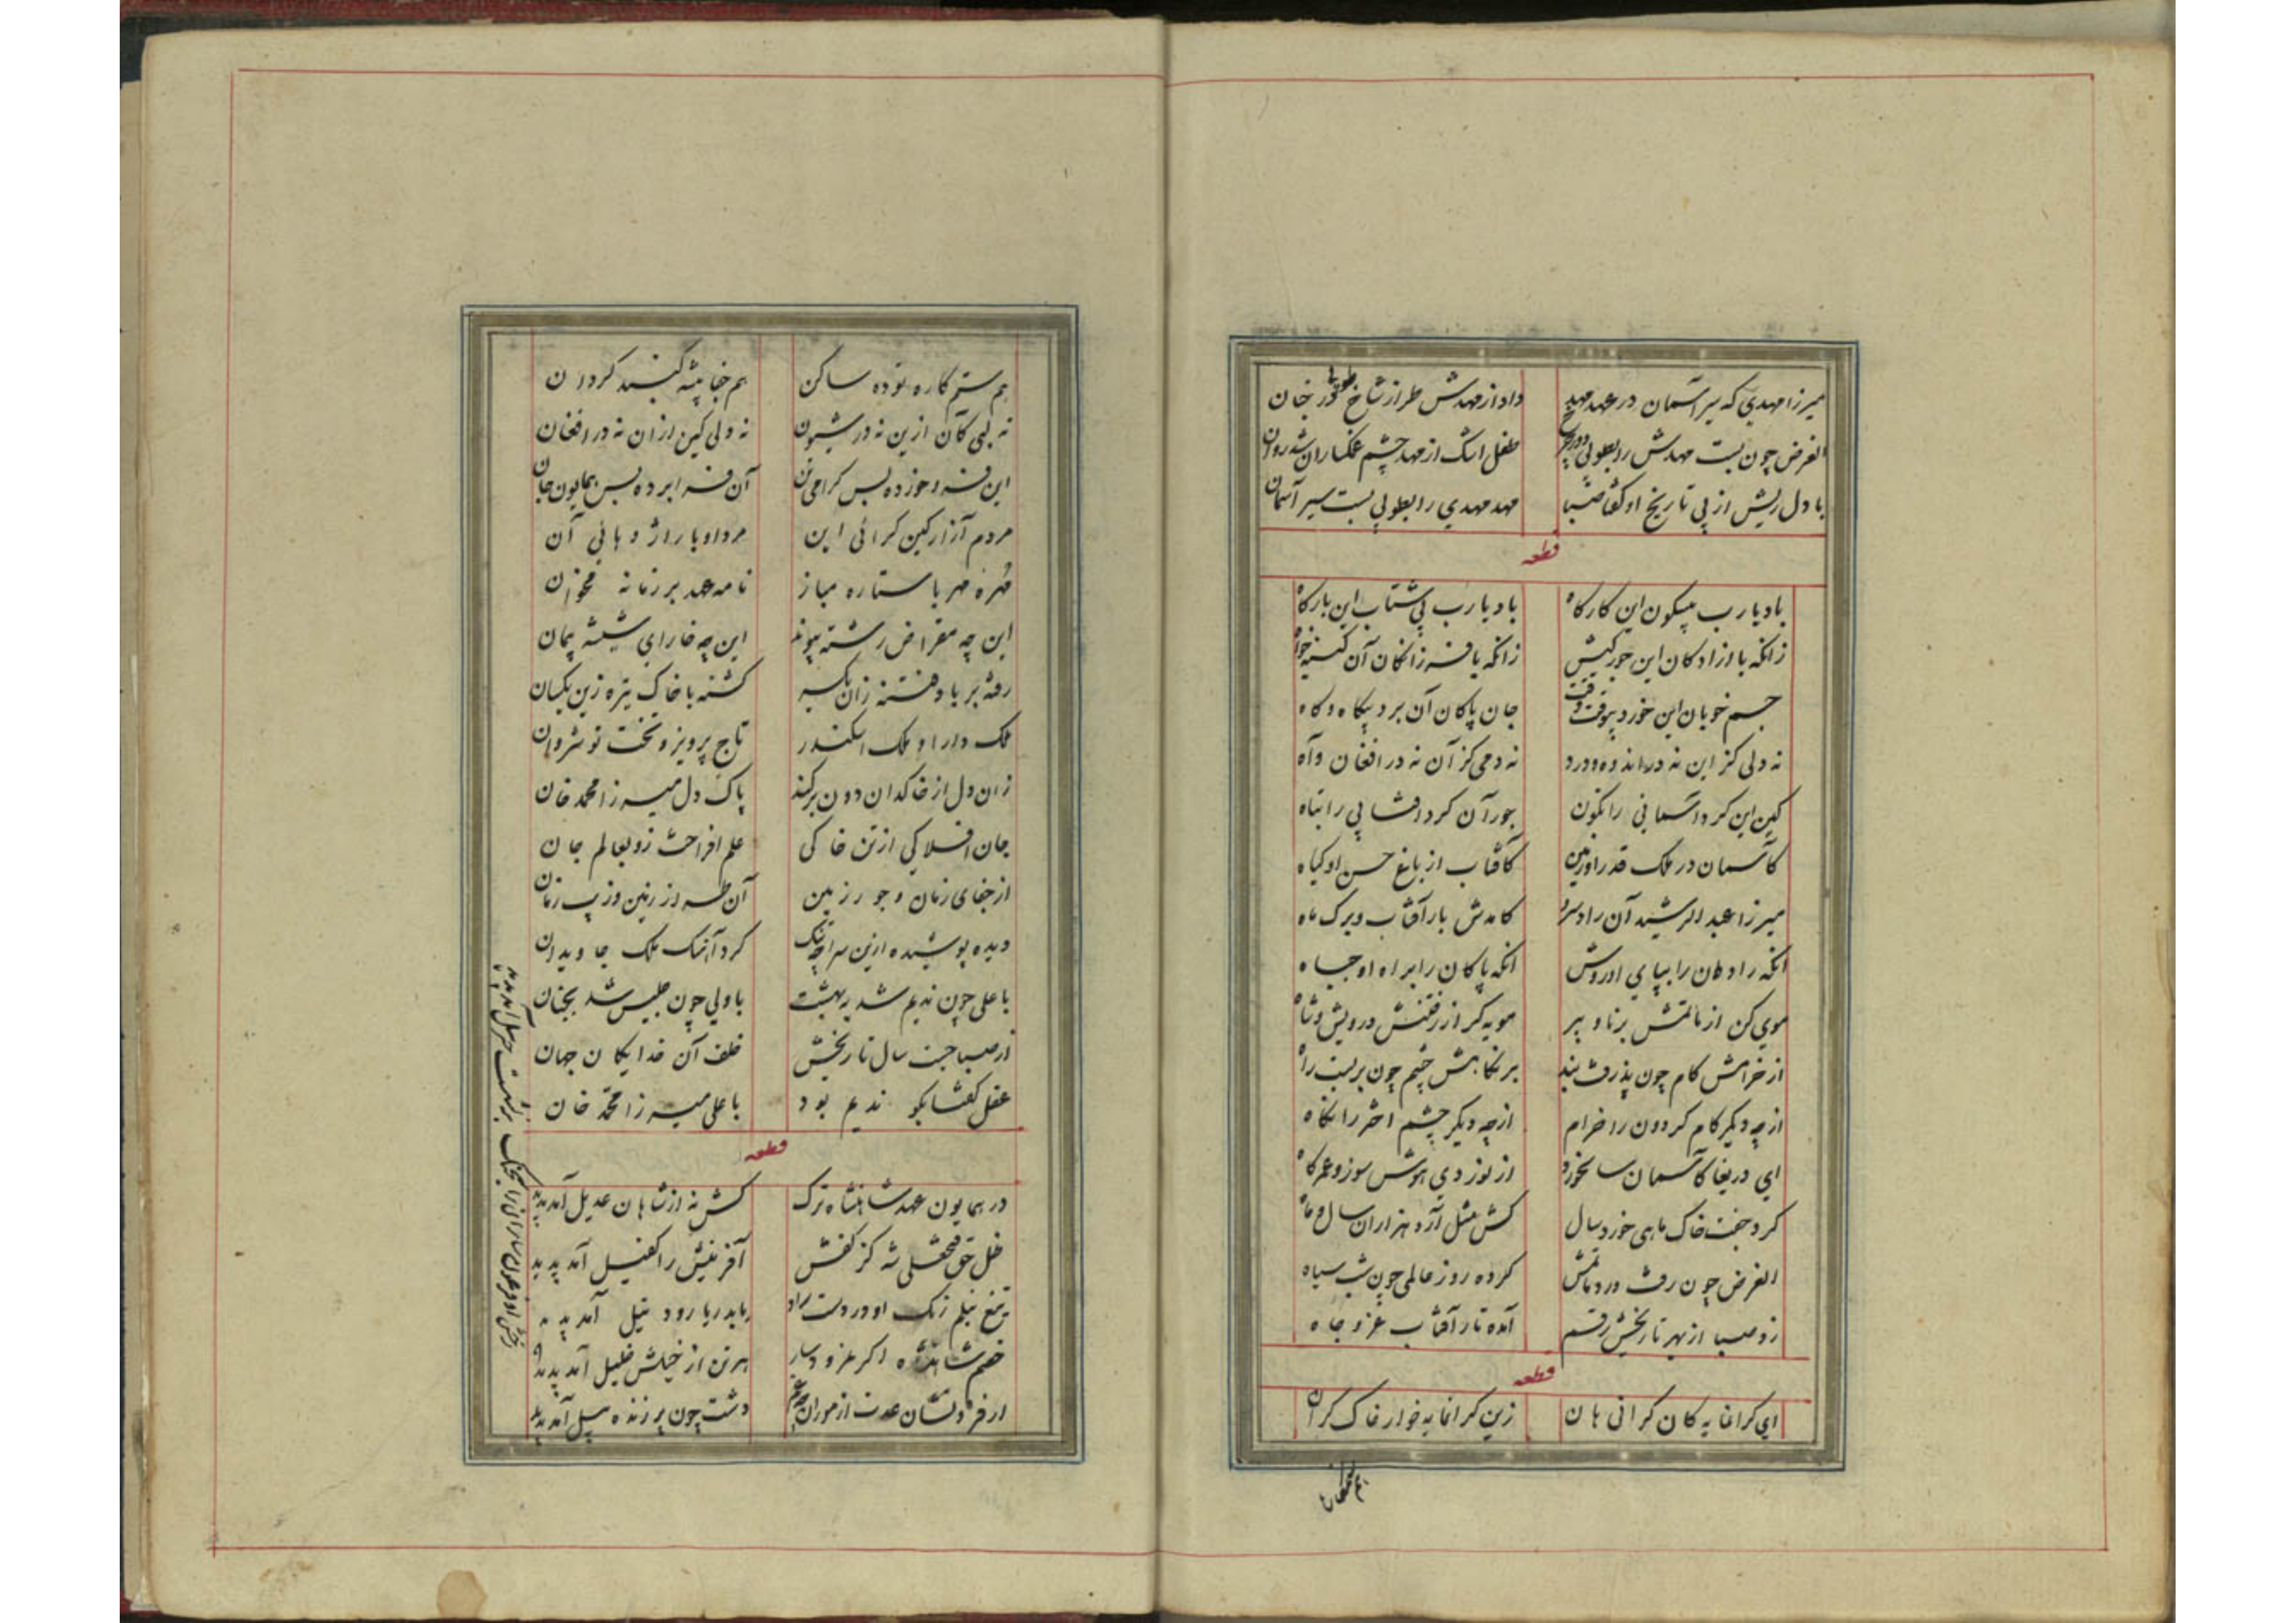 میرزا مهدی که سیر آسمان در عهد مهد داد از مهدش طراز شاخ طوبی در جنان
الغرض چون بست مهدش را بطوبی طفل اشک از مهد چشم غمگساران شد روان
با دل ریش از پی تاریخ او گفتا صبا مهد مهدی را بطوبی بست سیر آسمان
قطعه
باد یا رب بیسکون این کارگاه باد یا رب بی شتاب این بارگاه
زانکه با ازادکان این جور کیش زانکه با فرزانکان آن کینه خواه
جسم خوبان این خورد بیوقت وقت جان پاکان آن برد بیکاه و کاه
نه دلی کز این نه در اندوه و درد نه دمی کز آن نه در افغان و آه
کین این کرد آسمانی را نکون جور آن کرد افتابی را تباه
کآسمان در ملک قدر او زمین کافتاب از باغ حسن او کیاه
میرزا عبد الرشید آن راد سرو کامدش بار آفتاب و برک ماه
انکه رادان را بپای او روش انکه پاکان را براه او جباه
موی کن از ماتمش برنا و پیر مویه کر از رفتنش درویش و شاه
از خرامش کام چون پذرفت بند بر نکاهش چشم چون بربست راه
از چه دیکر کام کردون را خرام از چه دیکر چشم اختر را نکاه
ای دریغا کآسمان سالخورد از نوردی هوش سوز و عمر کاه
کرد جفت خاک ماهی خورد سال کش مثل آرد هزاران سال و ماه
الغرض چون رفت و در ماتمش کرده روز عالمی چون شب سیاه
زد صبا از بهر تاریخش رقم آمده تار آفتاب عز و جاه
قطعه
ای کرانمایه کان کرانی هان زین کرانمایه خوار خاک کران
هم ستم کاره توده ساکن هم جفا پیشه کنبد کردان
نه لبی کآن ازین نه در شیون نه دلی کین ازان نه در افغان
این فرو خورده بس کرامی تن آن فرا برده بس همایون جان
مردم آزار کین کرائی این مرد اوبار اژدهائی آن
مهره مهر با ستاره مباز نامه عهد بر زمانه مخوان
این چه مقراض رشته پیوند این چه خارای شیشه پیمان
رفته بر باد فتنه زان یکسر کشته با خاک تیره زین یکسان
ملک دارا و ملک اسکندر تاج پرویز و تخت نوشروان
زان دل از خاکدان دون برکند پاک دل میرزا محمد خان
جان افلاکی از تن خاکی علم افراخت زو بعالم جان
از جفای زمان و جور زمین آن طرف از زمین وز پس زمان
دیده پوشیده ازین سراچه تنک کرد آهنک ملک جاویدان
با علی چون ندیم شد به بهشت با ولی چون جلیس شد بجنان
از صبا جست سال تاریخش خلف آن خدایکان جهان
عقل کفتا بکو ندیم بود با علی میرزا محمد خان
قطعه
در همایون عهد شاهنشاه ترک کش نه از شاهان عدیل آمد پدید
ظل حق فتحعلی شه کز کفش آفرینش را کفیل آمد پدید
تیغ نیلم رنک او در دست راد باید ریا رود نیل آمد پدید
خصم شاهنشه اکر هر تن از خیلش خلیل آمد پدید
دشت چون پرزنده پیل آمد پدید